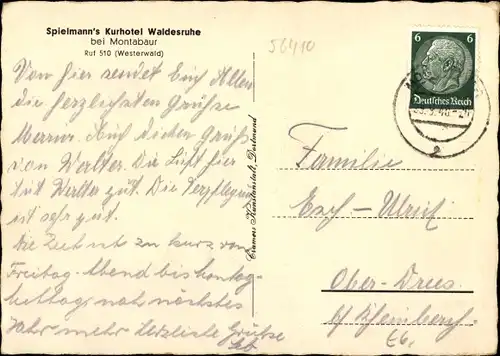 Spielmann's Kurhotel Waldesruhe
bei Montabaur
Ruf 510 (Westerwald)
56410
6 6
Deutsches Reich
Von hier sendet Euch Allen
die herzlichsten Grüße
Auch dicken Gruß
von Walter. Die Luft hier
tut Walter gut. Die Verpflegung
ist sehr gut.
Die Zeit ist zu kurz von
Freitag-Abend bis Montag-
Mittag, nah nächstes
Jahr mehr Herzliche Grüße
Cramers Kunstanstalt, Dortmund
Familie
Esch-Ulrich
Ober-Drees
b/ Rheinbach